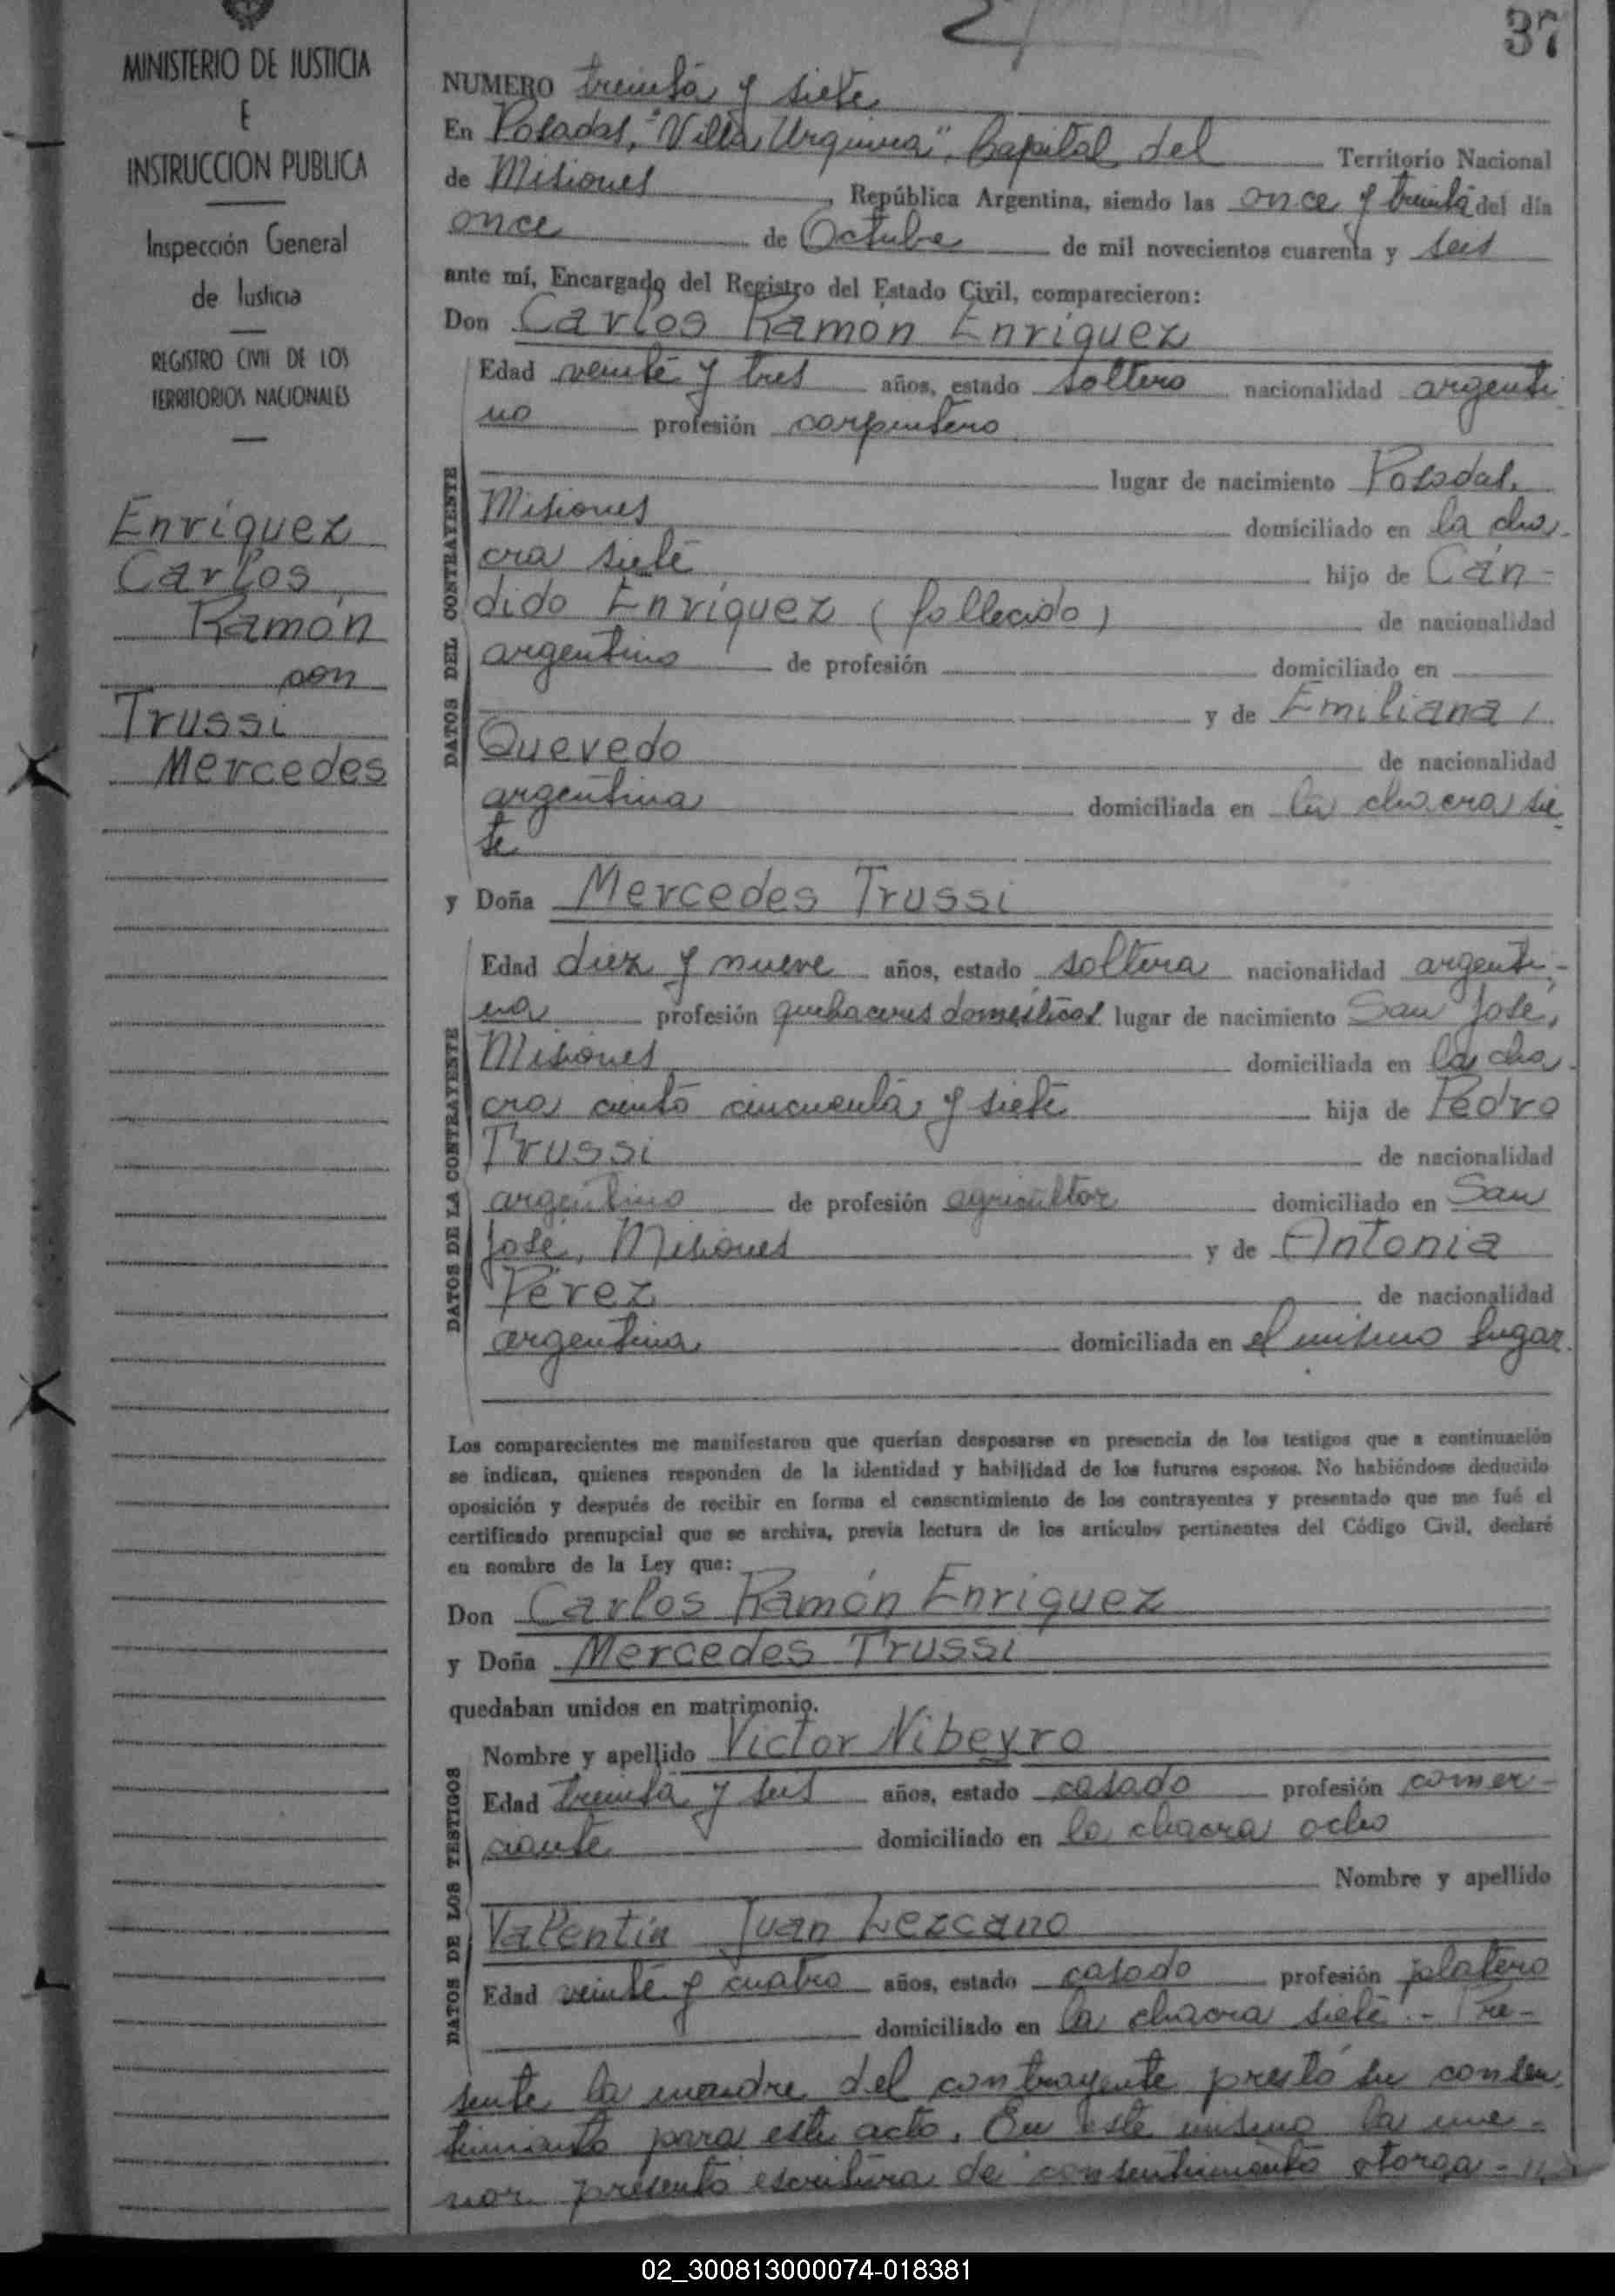 37
MINISTERIO DE JUSTICIA
E
INSTRUCCION PUBLICA
Inspección General
de Justicia
REGISTRO CIVIL DE LOS
TERRITORIOS NACIONALES
Enríquez
Carlos
Ramón
con
Trussi
Mercedes
NUMERO treinta y siete
En Posadas, "Villa Urquiza", Capital del Territorio Nacional
de Misiones, República Argentina, siendo las once y treinta del día
once de Octubre de mil novecientos cuarenta y seis
ante mí, Encargado del Registro del Estado Civil, comparecieron:
Don Carlos Ramón Enríquez
DATOS DEL CONTRAYENTE
Edad veinte y tres años, estado soltero nacionalidad argenti
no profesión carpintero
lugar de nacimiento Posadas,
Misiones domiciliado en la cha-
cra siete hijo de Cán-
dido Enríquez (fallecido) de nacionalidad
argentino de profesión domiciliado en
y de Emiliana
Quevedo de nacionalidad
argentina domiciliada en la chacra sie
te
y Doña Mercedes Trussi
DATOS DE LA CONTRAYENTE
Edad diez y nueve años, estado soltera nacionalidad argenti-
na profesión quehaceres domésticos lugar de nacimiento San José,
Misiones domiciliada en la cha-
cra ciento cincuenta y siete hija de Pedro
Trussi de nacionalidad
argentino de profesión agricultor domiciliado en San
José, Misiones y de Antonia
Pérez de nacionalidad
argentina domiciliada en el mismo lugar.
Los comparecientes me manifestaron que querían desposarse en presencia de los testigos que a continuación
se indican, quienes responden de la identidad y habilidad de los futuros esposos. No habiéndose deducido
oposición y después de recibir en forma el consentimiento de los contrayentes y presentado que me fué el
certificado prenupcial que se archiva, previa lectura de los artículos pertinentes del Código Civil, declaré
en nombre de la Ley que:
Don Carlos Ramón Enriquez
y Doña Mercedes Trussi
quedaban unidos en matrimonio.
DATOS DE LOS TESTIGOS
Nombre y apellido Victor Nibeyro
Edad treinta y seis años, estado casado profesión comer-
ciante domiciliado en la chacra ocho
Nombre y apellido
Valentín Juan Lezcano
Edad veinte y cuatro años, estado casado profesión platero
domiciliado en la chacra siete.- Pre-
sente la madre del contrayente prestó su consen
timiento para este acto. En este mismo la me-
nor presentó escritura de consentimiento otorga-
02_300813000074-018381